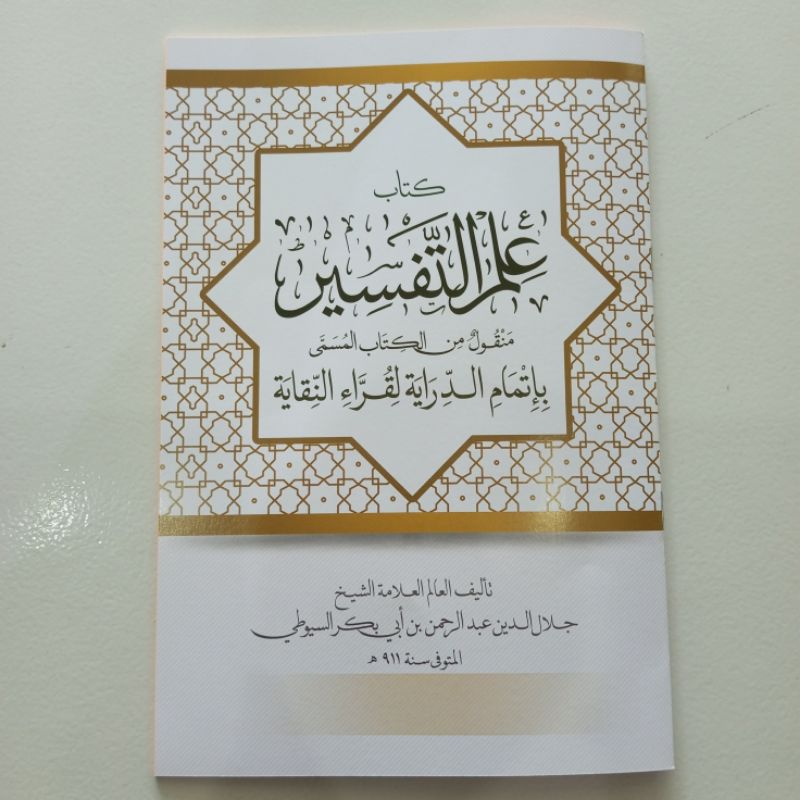 كتاب
عِلم التَّفْسِير
مَنْقُولٌ مِن الكِتَاب المُسَمَّى
بِإِتْمَامِ الدِّرَايَة لِقُرَّاءِ النِّقَايَة
تأليف العالم العلامة الشيخ
جلال الدين عبد الرحمن بن أبي بكر السيوطي
المتوفى سنة ٩١١ هـ